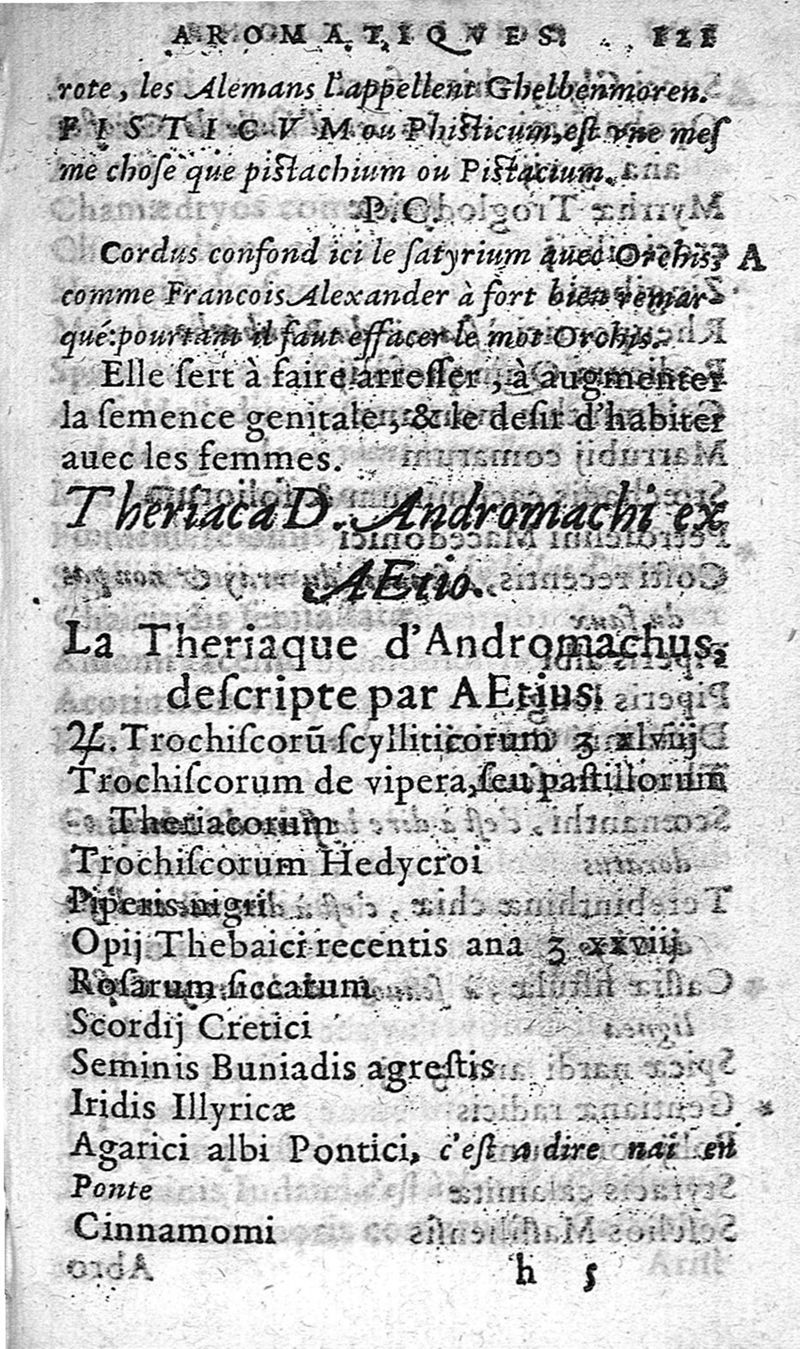 AROMATIQVES. 121
rote, les Alemans l'appellent Ghelbenmoren.
FISTICVM ou Phisticum, est vne mes
me chose que pistachium ou Pistacium.
P. C.
Cordus confond ici le satyrium auec Orchis, A
comme Francois Alexander à fort bien remar
qué: pourtant il faut effacer le mot Orchis.
Elle sert à faire arresser, à augmenter
la semence genitale, & le desir d'habiter
auec les femmes.
Theriaca D. Andromachi ex
AEtio.
La Theriaque d'Andromachus,
descripte par AEtius.
♃. Trochiscorū scylliticorum ʒ xlviij
Trochiscorum de vipera, seu pastillorum
Theriacorum
Trochiscorum Hedycroi
Piperis nigri
Opij Thebaici recentis ana ʒ xxviij.
Rosarum siccatum
Scordij Cretici
Seminis Buniadis agrestis
Iridis Illyricæ
Agarici albi Pontici, c'est a dire nai en
Ponte
Cinnamomi
h 5